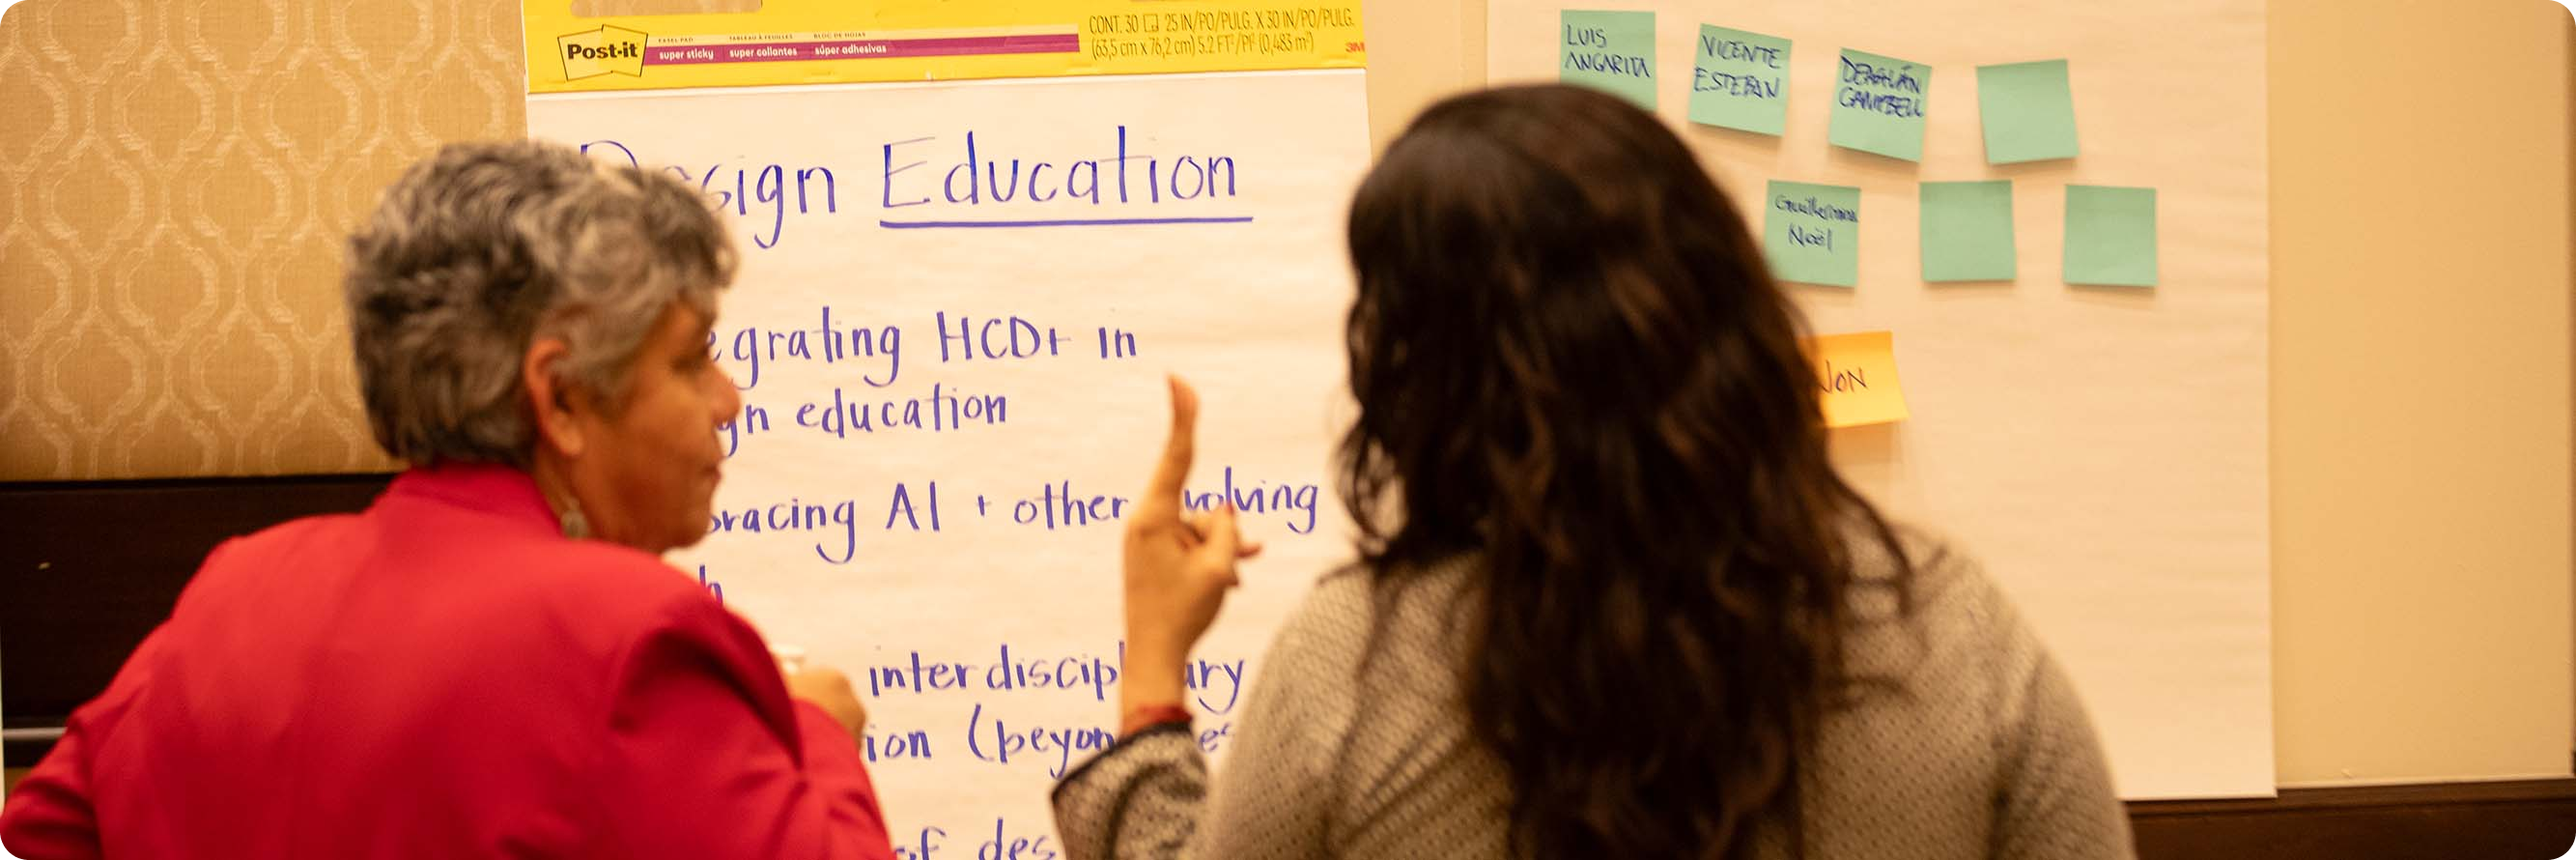 Post-it
EASEL PAD TABLEAU À FEUILLES BLOC DE HOJAS
super sticky super collantes súper adhesivas
CONT. 30 25 IN/PO/PULG. X 30 IN/PO/PULG.
(63,5 cm x 76,2 cm) 5.2 FT²/PI² (0,483 m²)
3M
Design Education
egrating HCD+ in
gn education
bracing AI + other evolving
h
interdisciplinary
ion (beyon
of des
LUIS
ANGARITA
VICENTE
ESTEBAN
CAMPBELL
Guillermina
Noël
NON